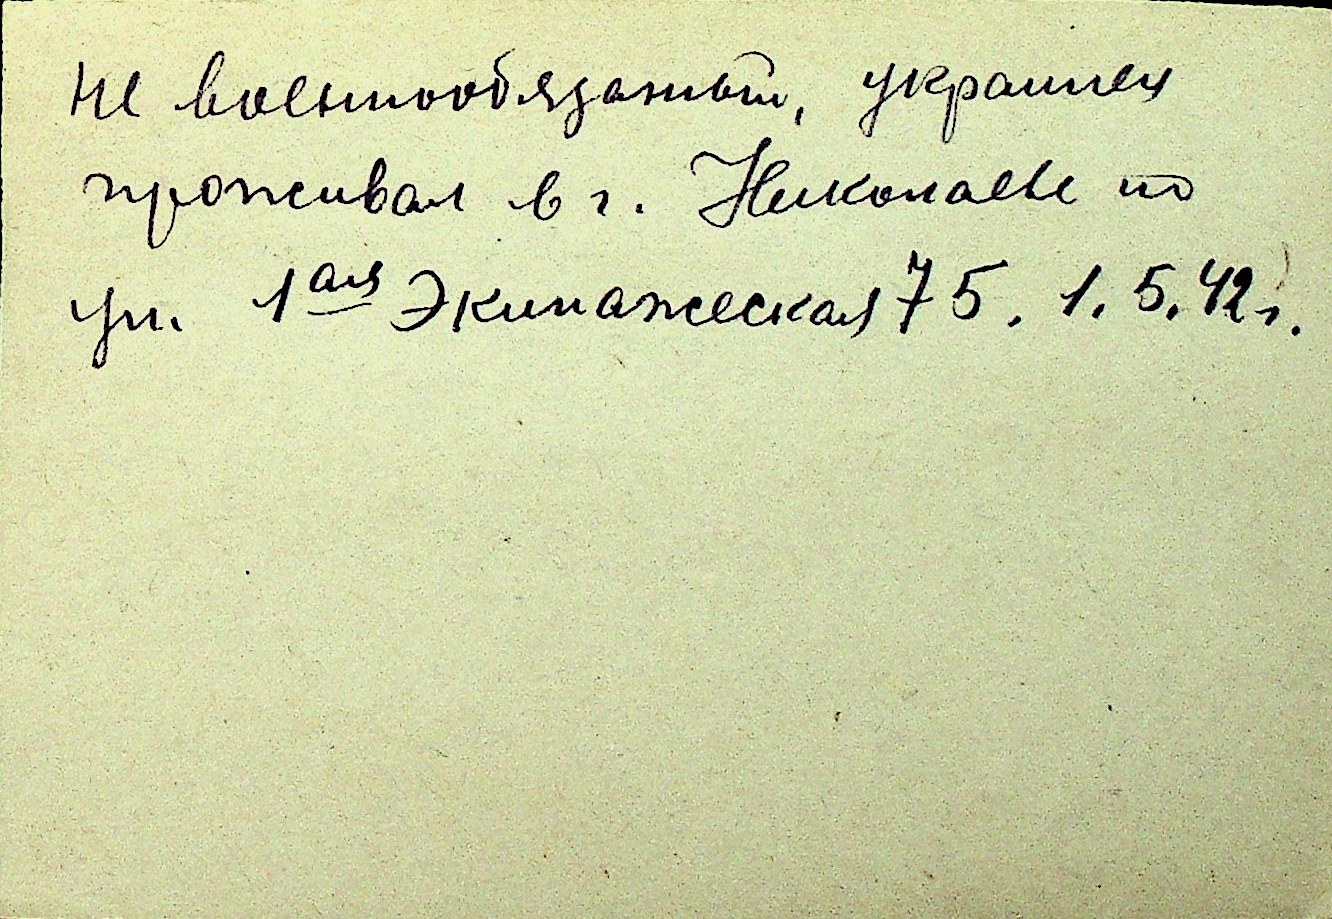 не военнообязаный, украинец
проживал в г. Николаеве по
ул. 1ая Экипажеская 75. 1.5.42г.